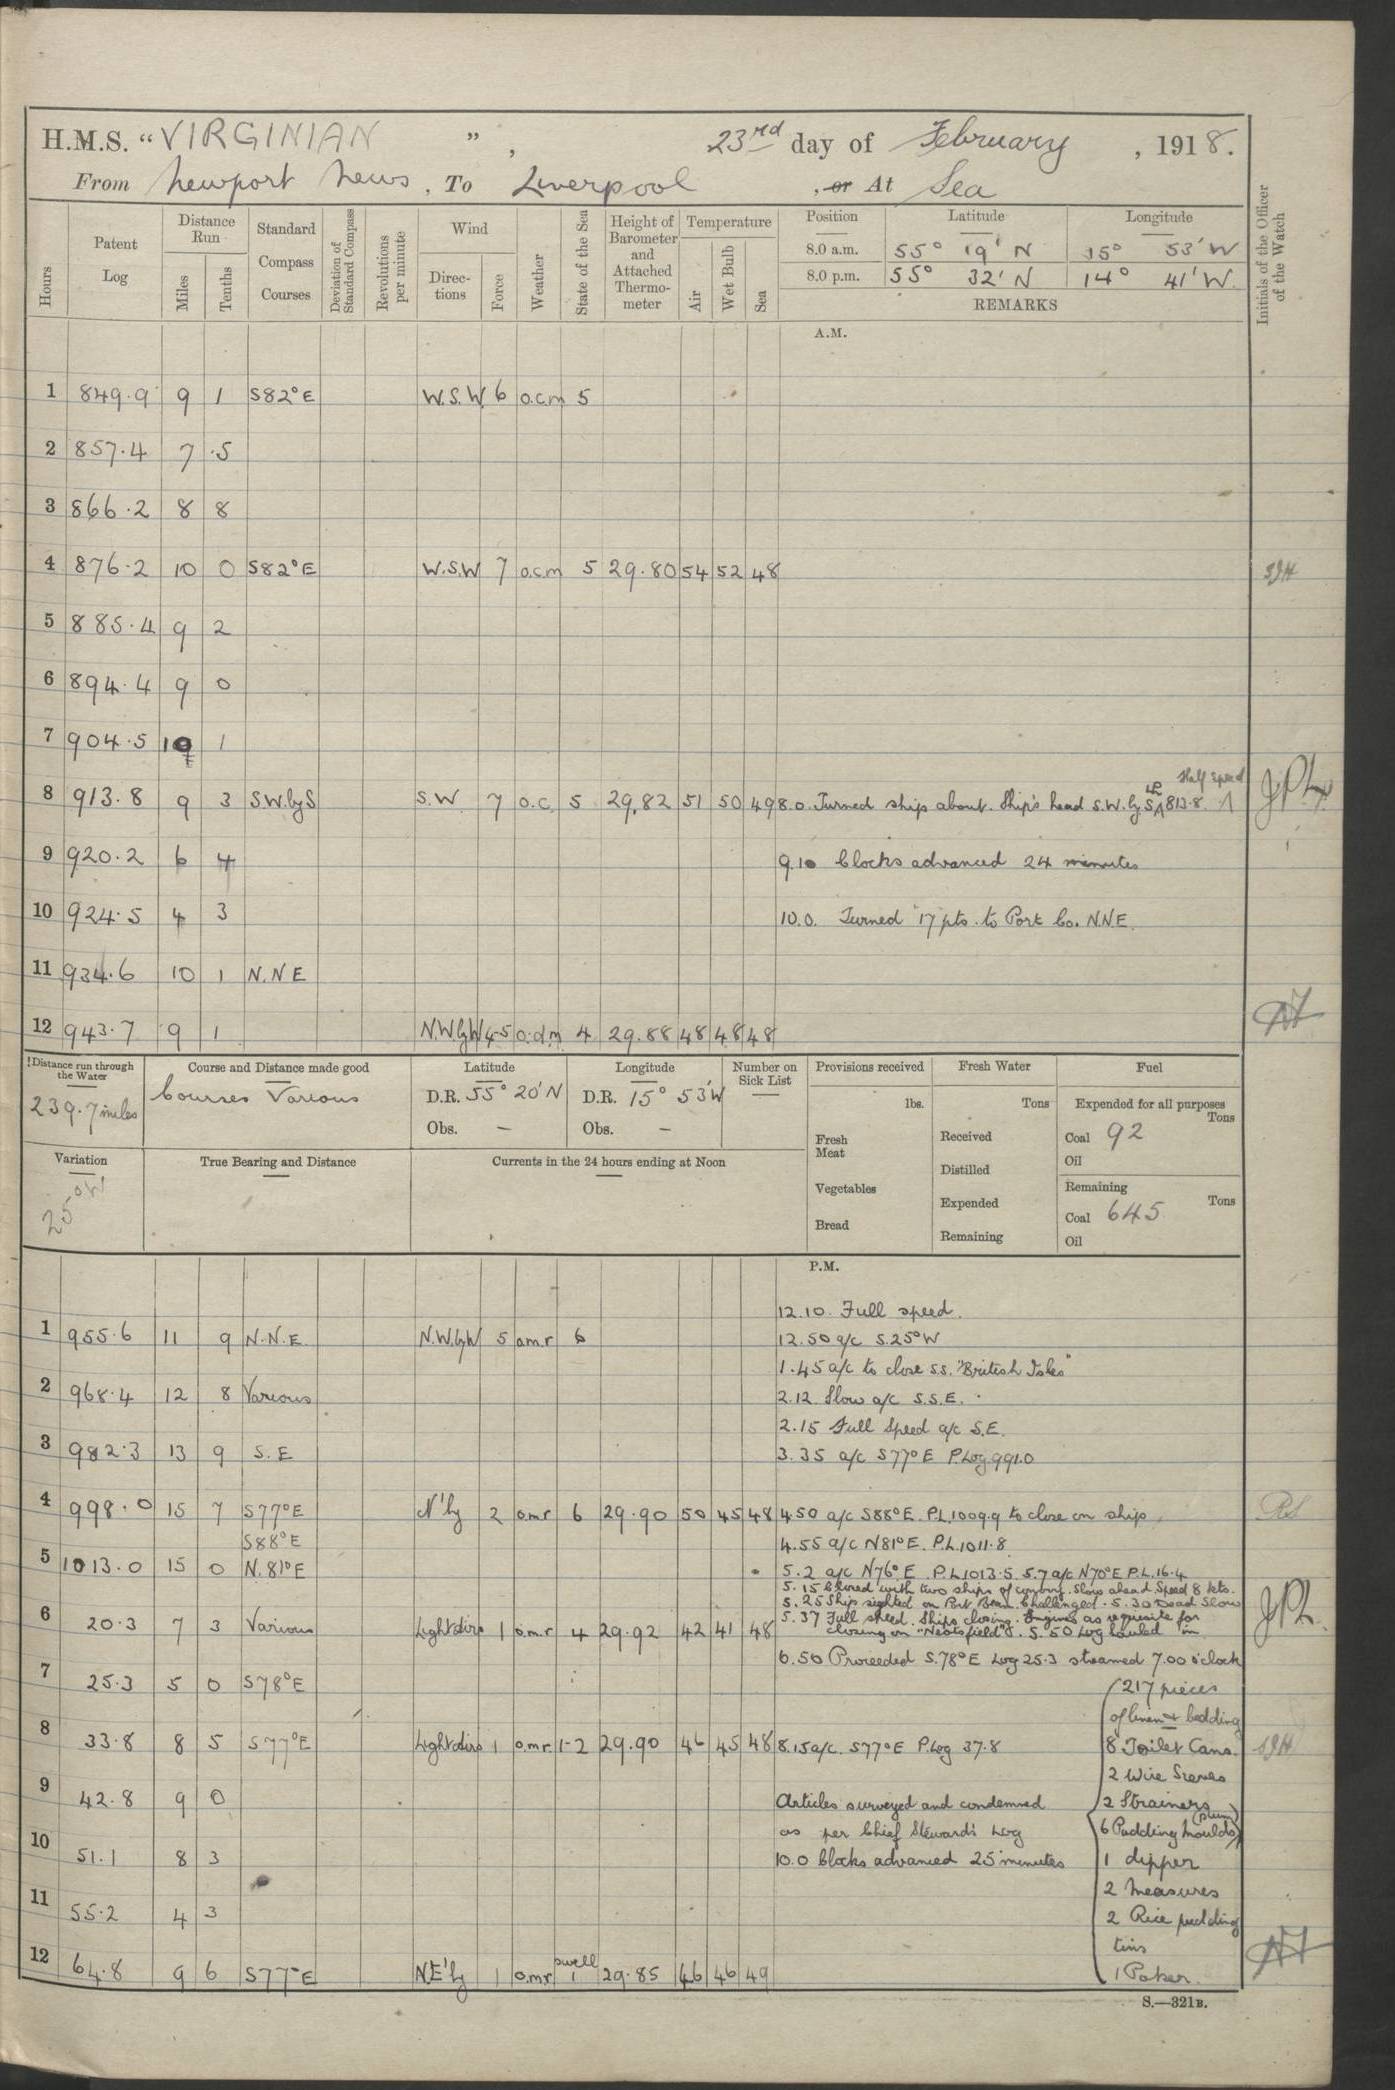 H.M.S. "VIRGINIAN", 23rd day of February, 1918.
From Newport News, To Liverpool, or At Sea
Hours
Patent Log
Distance Run
Miles
Tenths
Standard Compass Courses
Deviation of Standard Compass
Revolutions per minute
Wind
Directions
Force
Weather
State of the Sea
Height of Barometer and Attached Thermometer
Temperature
Air
Wet Bulb
Sea
Position Latitude Longitude
8.0 a.m. 55° 19' N 15° 53' W
8.0 p.m. 55° 32' N 14° 41' W.
REMARKS
Initials of the Officer of the Watch
A.M.
1 849.9 9 1 S82°E W.S.W 6 o.c.m 5
2 857.4 7 .5
3 866.2 8 8
4 876.2 10 0 S82°E W.S.W 7 o.c.m 5 29.80 54 52 48
5 885.4 9 2
6 894.4 9 0
7 904.5 10 1
Half Speed
8 913.8 9 3 S.W.byS S.W 7 o.c. 5 29.82 51 50 49 8.0 Turned ship about. Ship's head S.W. by S PL 813.8.
9 920.2 6 4 9.10 Clocks advanced 24 minutes
10 924.5 4 3 10.0. Turned 17 pts. to Port Co. N.N.E.
11 934.6 10 1 N.N E
12 943.7 9 1 N.W.byW 4-5 o.d.m 4 29.88 48 48 48
Distance run through the Water
239.7 miles
Course and Distance made good
Courses Various
Latitude
D.R. 55° 20' N
Obs. —
Longitude
D.R. 15° 53' W
Obs. —
Number on Sick List
—
Provisions received
lbs.
Fresh Meat
Vegetables
Bread
Fresh Water
Tons
Received
Distilled
Expended
Remaining
Fuel
Expended for all purposes
Tons
Coal 92
Oil
Remaining
Tons
Coal 645
Oil
Variation
25° W
True Bearing and Distance
Currents in the 24 hours ending at Noon
P.M.
12.10. Full speed.
1 955.6 11 9 N.N.E. N.W.byW 5 o.m.r 6 12.50 a/c S.25°W
1.45 a/c to close s.s. "British Isles"
2 968.4 12 8 Various 2.12 Slow a/c S.S.E.
2.15 Full Speed a/c S.E.
3 982.3 13 9 S.E 3.35 a/c S77°E P.Log 991.0
4 998.0 15 7 S77°E N'ly 2 o.m.r 6 29.90 50 45 48 4.50 a/c S88°E. P.L. 1009.9 to close on ship
S88°E 4.55 a/c N81°E. P.L. 1011.8
5 1013.0 15 0 N.81°E 5.2 a/c N76°E P.L 1013.5 5.7 a/c N70°E P.L. 16.4
5.15 Closed with two ships of convoy. Slow ahead Speed 8 kts.
5.25 Ship sighted on Port Beam. Challenged. 5.30 Dead Slow
6 20.3 7 3 Various Light airs 1 o.m.r 4 29.92 42 41 48 5.37 Full speed. Ships closing. Engines as requisite for
closing on "Neotsfield". 5.50 Log hauled in
6.50 Proceeded S.78°E Log 25.3 streamed 7.00 o'clock
7 25.3 5 0 S78°E 217 pieces
of linen & bedding
8 33.8 8 5 S77°E Light airs 1 o.m.r. 1-2 29.90 46 45 48 8.15 a/c. S77°E P.Log 37.8 8 Toilet Cans.
2 Wire Sieves
9 42.8 9 0 Articles surveyed and condemned 2 Strainers
as per Chief Steward's Log 6 Pudding moulds (plum)
10 51.1 8 3 10.0 Clocks advanced 25 minutes 1 dipper
2 Measures
11 55.2 4 3 2 Rice pudding
tins
12 64.8 9 6 S77°E N.E'ly 1 o.m.r swell 1 29.85 46 46 49 1 Poker.
S.—321B.